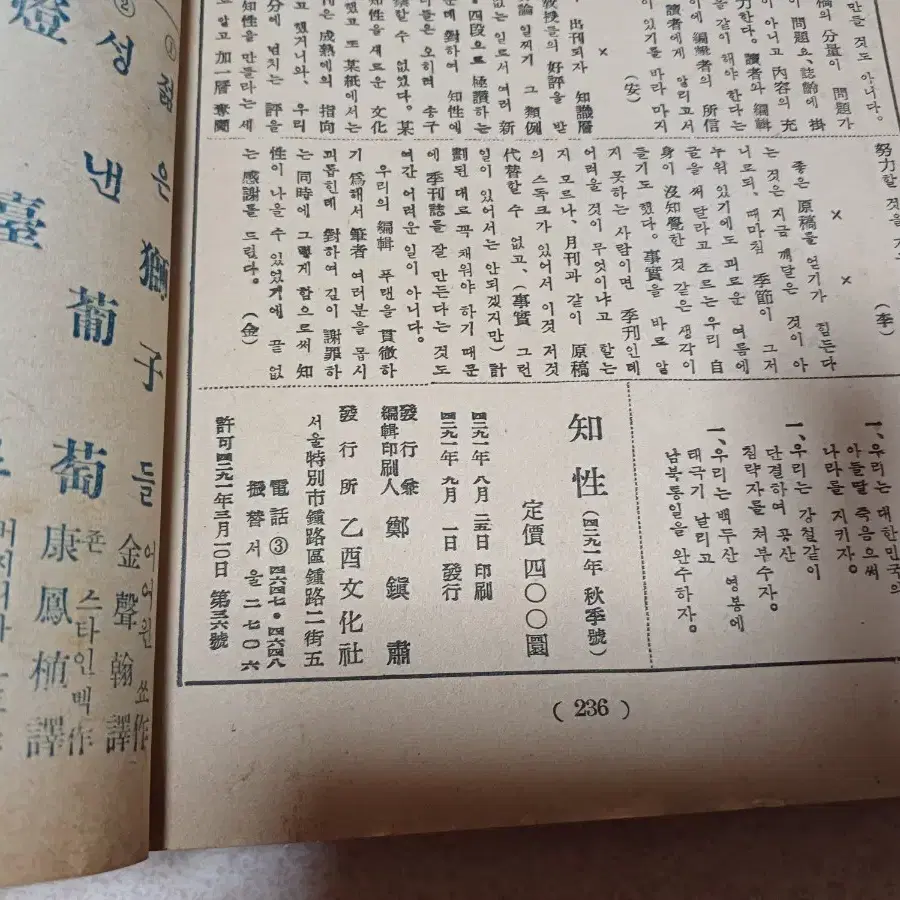 만들 것도 아니다.
稿의 分量이 問題가
이 問題요、誌齡에 掛
이 아니고 內容의 充
力한다. 讀者와 編輯
을 같이 해야 한다는
에 編輯者의 所信
讀者에게 알리고서
있기를 바라 마지
(安)
×
出刊되자 知識層
敎授들의 好評을 받
論 일찌기 그 類例
없는 일로서 여러 新
四段으로 極讚하는
운데 對하여 知性에
들은 오히려 송구
察할 수 없었다. 某
知性을 새로운 文化
했고 또 某紙에서는
刊은 成熟에의 指向
고 했거니와、우리
分에 넘치는 評을
知性을 만들라는 세
로 알고 加一層 奪鬪
努力할 것을
(李)
×
×
좋은 原稿를 얻기가 힘든다
는 것은 지금 깨달은 것이 아
니로되、때마침 季節이 그저
누워 있기에도 괴로운 여름에
글을 써 달라고 조르는 우리 自
身이 沒知覺한 것 같은 생각이
들기도 했다. 事實을 바로 알
지 못하는 사람이면 季刊인데
어려울 것이 무엇이냐고 할는
지 모르나、月刊과 같이 原稿
의 스톡크가 있어서 이것 저것
代替할 수 없고、(事實 그런
일이 있어서는 안되겠지만) 計
劃된 대로 꼭 채워야 하기 때문
에 季刊誌를 잘 만든다는 것도
여간 어려운 일이 아니다.
우리의 編輯 푸랜을 貫徹하
기 爲해서 筆者 여러분을 몹시
괴롭힌데 對하여 깊이 謝罪하
는 同時에 그렇게 함으로써 知
性이 나올 수 있었기에 끝 없
는 感謝를 드린다. (金)
一、우리는 대한민국의
아들딸 죽음으로써
나라를 지키자.
一、우리는 강철같이
단결하여 공산
침략자를 쳐부수자.
一、우리는 백두산 영봉에
태극기 날리고
남북통일을 완수하자.
知性 (四二九一年 秋季號)
定價 四〇〇圜
四二九一年 八月 二五日 印刷
四二九一年 九月 一日 發行
發行兼
編輯印刷人 鄭鎭肅
發行所 乙酉文化社
서울特別市鍾路區鍾路二街五
電話③四六四七・四六四八
振替 서울 二七〇六
許可四二九一年三月一〇日 第三六號
(236)
① 젊은 獅子들 어어윈 쑈作 金聲翰譯
② 성낸 葡萄 죤 스타인벡作 康鳳植譯
燈臺